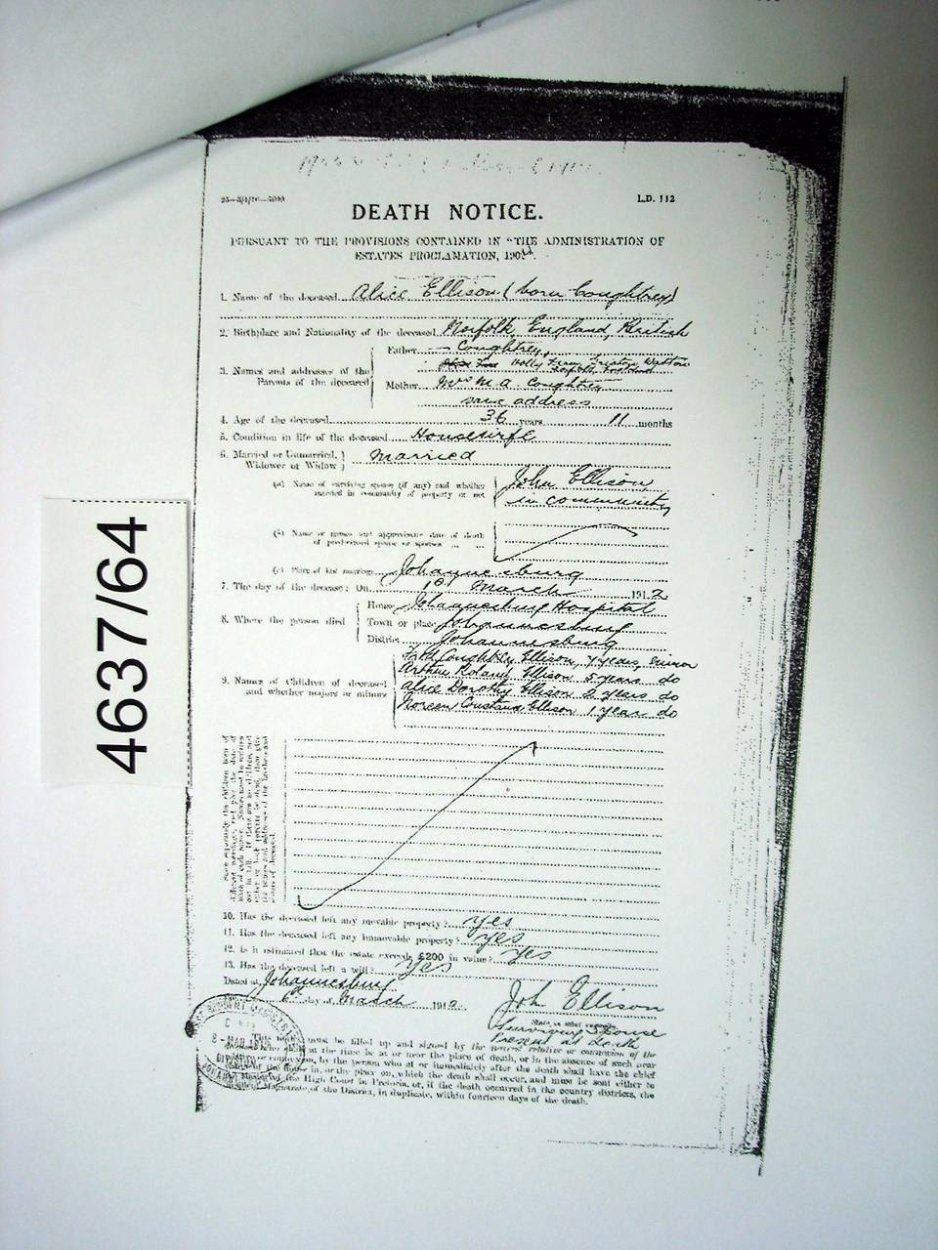 L.D. 112
DEATH NOTICE.
PURSUANT TO THE PROVISIONS CONTAINED IN "THE ADMINISTRATION OF
ESTATES PROCLAMATION, 1902".
1. Name of the deceased Alice Ellison (born Coughtrey)
2. Birthplace and Nationality of the deceased Norfolk, England, British
3. Names and addresses of the Parents of the deceased
Father — Coughtrey,
Holly Farm, Walton
Norfolk, England
Mother Mrs M. A. Coughtrey
same address
4. Age of the deceased 36 years 11 months
5. Condition in life of the deceased Housewife
6. Married or Unmarried, Married
Widower or Widow
(a) Name of surviving spouse (if any) and whether John Ellison,
married in community of property or not in community
(b) Name or names and approximate date of death
of predeceased spouse or spouses
(c) Place of last marriage Johannesburg
7. The day of the decease: On 1st March 1912
8. Where the person died
House Johannesburg Hospital
Town or place Johannesburg
District Johannesburg
9. Names of Children of deceased
and whether majors or minors
Coughtrey Ellison 7 years, minor
Arthur Roland Ellison 5 years do
Alice Dorothy Ellison 2 years do
Noreen Constance Ellison 1 year do
10. Has the deceased left any movable property? yes
11. Has the deceased left any immovable property? yes
12. Is it estimated that the estate exceeds £200 in value? Yes
13. Has the deceased left a will? Yes
Dated at Johannesburg
6th day of March 1912
Joh Ellison
Surviving Spouse
Present at death
This must be filled up and signed by the nearest relative or connexion of the
at the time be at or near the place of death, or in the absence of such near
or connexion, by the person who at or immediately after the death shall have the chief
of the house in, or the place on, which the death shall occur, and must be sent either to
of the High Court in Pretoria, or, if the death occurred in the country districts, the
Magistrate of the District, in duplicate, within fourteen days of the death.
4637/64